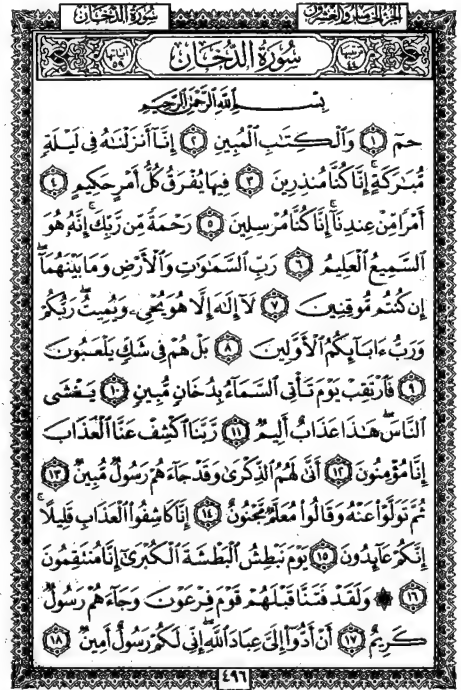 سُورَةُ الدُّخَانِ
الجُزءُ الخَامِسُ وَالعِشْرُونَ
آياتها ٥٩ سُورَةُ الدُّخَانِ ترتيبها ٤٤
بِسْمِ اللَّهِ الرَّحْمَٰنِ الرَّحِيمِ
حمٓ ١ وَٱلْكِتَٰبِ ٱلْمُبِينِ ٢ إِنَّآ أَنزَلْنَٰهُ فِى لَيْلَةٍ
مُّبَٰرَكَةٍ ۚ إِنَّا كُنَّا مُنذِرِينَ ٣ فِيهَا يُفْرَقُ كُلُّ أَمْرٍ حَكِيمٍ ٤
أَمْرًا مِّنْ عِندِنَآ ۚ إِنَّا كُنَّا مُرْسِلِينَ ٥ رَحْمَةً مِّن رَّبِّكَ ۚ إِنَّهُۥ هُوَ
ٱلسَّمِيعُ ٱلْعَلِيمُ ٦ رَبِّ ٱلسَّمَٰوَٰتِ وَٱلْأَرْضِ وَمَا بَيْنَهُمَآ ۖ
إِن كُنتُم مُّوقِنِينَ ٧ لَآ إِلَٰهَ إِلَّا هُوَ يُحْىِۦ وَيُمِيتُ ۖ رَبُّكُمْ
وَرَبُّ ءَابَآئِكُمُ ٱلْأَوَّلِينَ ٨ بَلْ هُمْ فِى شَكٍّ يَلْعَبُونَ
٩ فَٱرْتَقِبْ يَوْمَ تَأْتِى ٱلسَّمَآءُ بِدُخَانٍ مُّبِينٍ ١٠ يَغْشَى
ٱلنَّاسَ ۖ هَٰذَا عَذَابٌ أَلِيمٌ ١١ رَّبَّنَا ٱكْشِفْ عَنَّا ٱلْعَذَابَ
إِنَّا مُؤْمِنُونَ ١٢ أَنَّىٰ لَهُمُ ٱلذِّكْرَىٰ وَقَدْ جَآءَهُمْ رَسُولٌ مُّبِينٌ ١٣
ثُمَّ تَوَلَّوْا۟ عَنْهُ وَقَالُوا۟ مُعَلَّمٌ مَّجْنُونٌ ١٤ إِنَّا كَاشِفُوا۟ ٱلْعَذَابِ قَلِيلًا ۚ
إِنَّكُمْ عَآئِدُونَ ١٥ يَوْمَ نَبْطِشُ ٱلْبَطْشَةَ ٱلْكُبْرَىٰٓ إِنَّا مُنتَقِمُونَ
١٦ ۞ وَلَقَدْ فَتَنَّا قَبْلَهُمْ قَوْمَ فِرْعَوْنَ وَجَآءَهُمْ رَسُولٌ
كَرِيمٌ ١٧ أَنْ أَدُّوٓا۟ إِلَىَّ عِبَادَ ٱللَّهِ ۖ إِنِّى لَكُمْ رَسُولٌ أَمِينٌ ١٨
٤٩٦